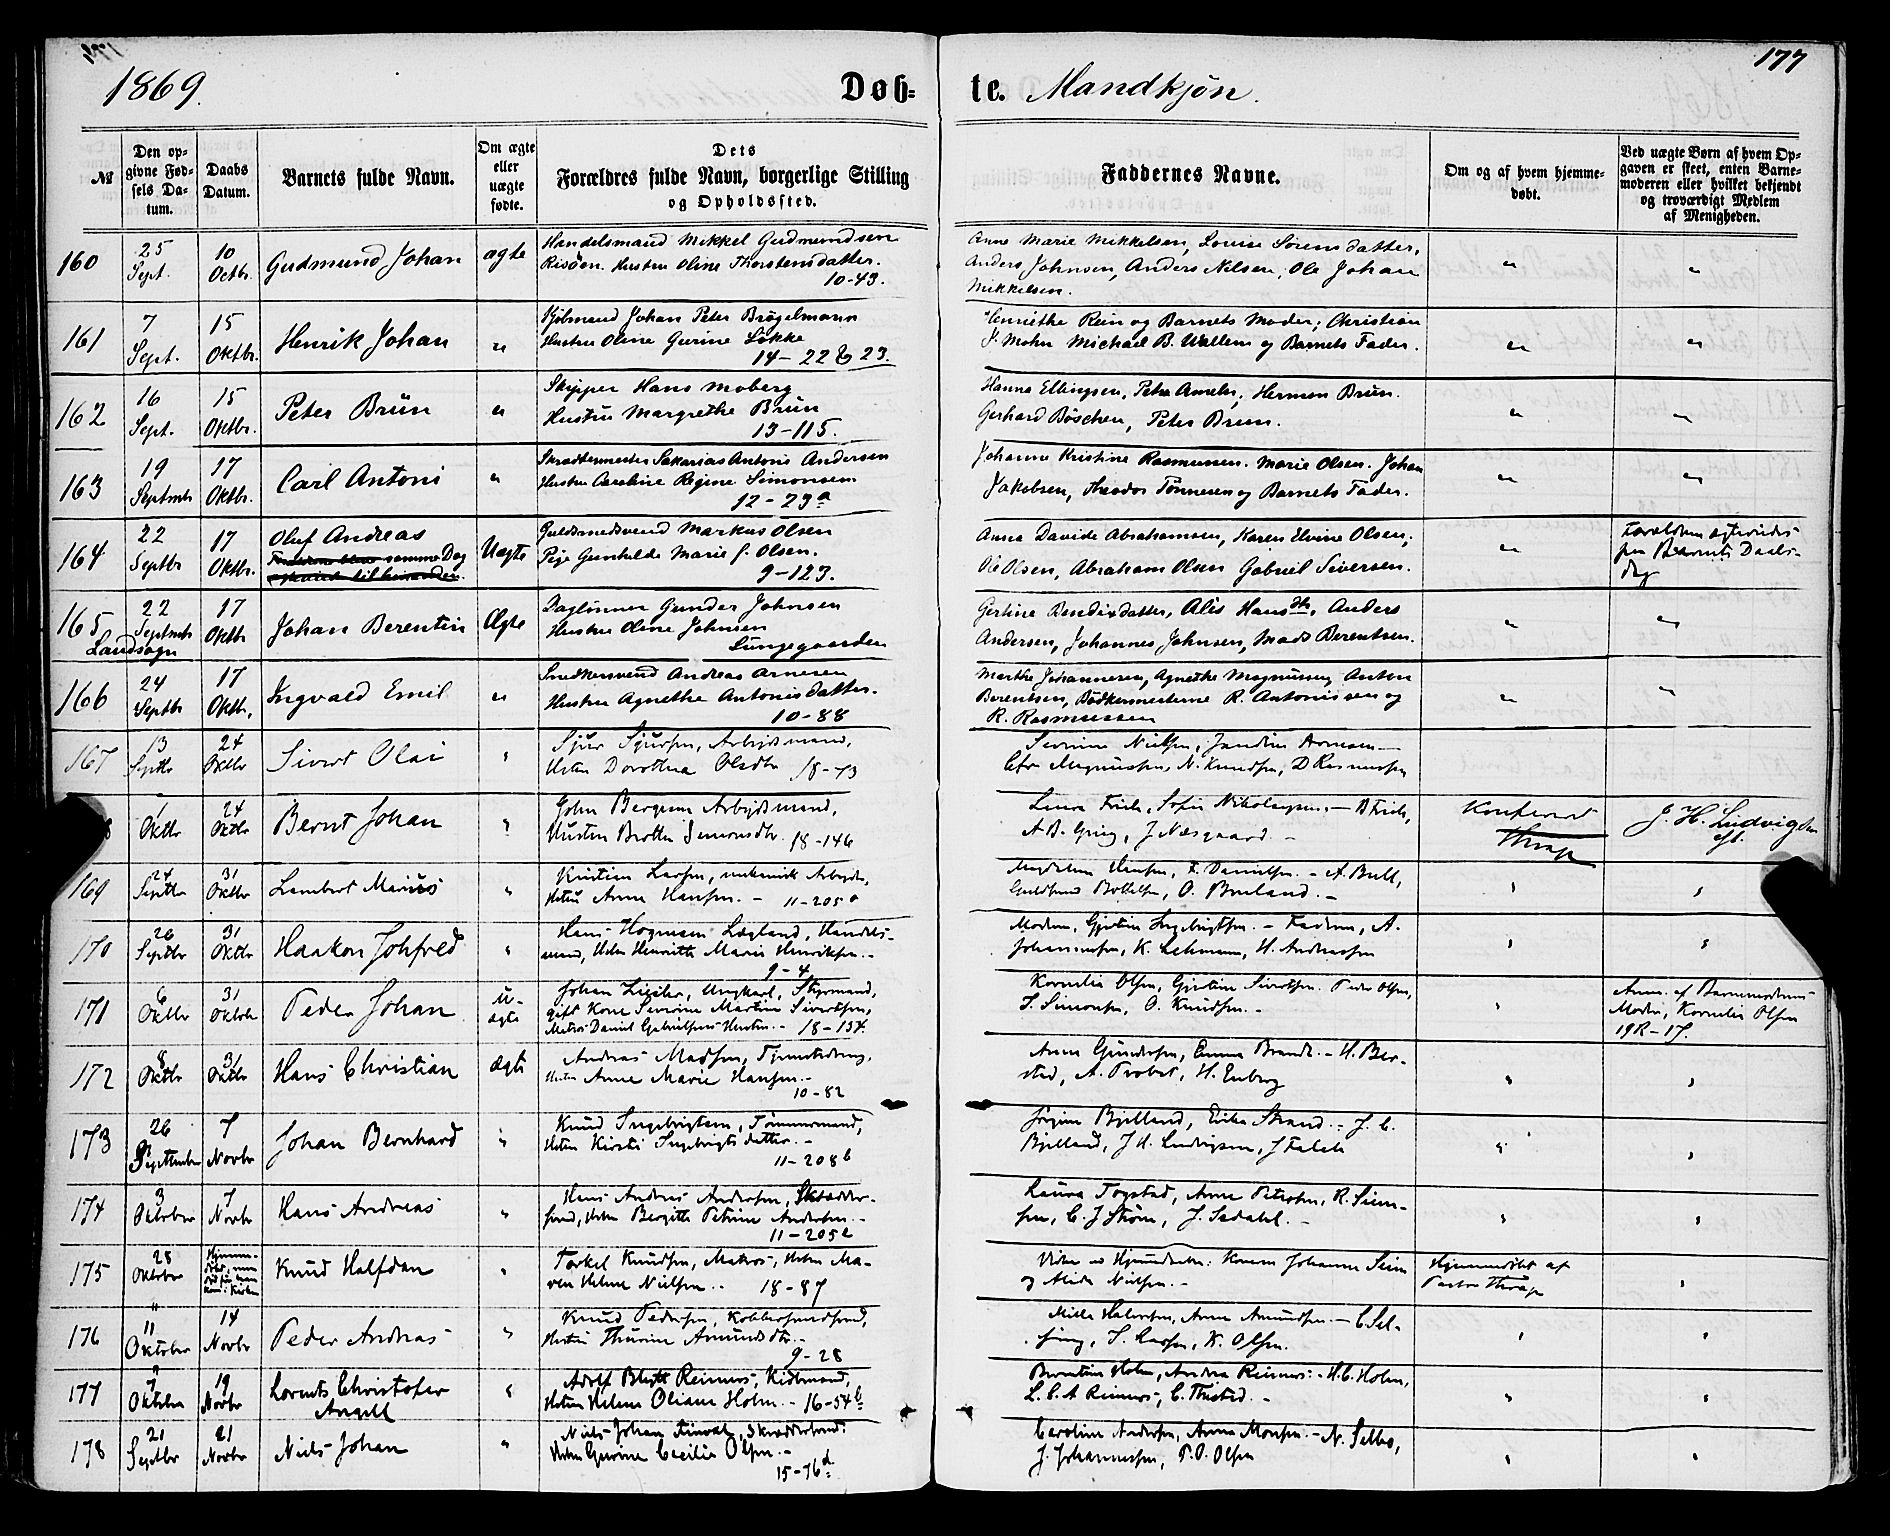 1869.
Døb-
te. Mandkjøn.
177
№
Den op-
givne Fød-
sels Da-
tum.
Daabs
Datum.
Barnets fulde Navn.
Om ægte
eller
uægte
fødte.
Dets
Forældres fulde Navn, borgerlige Stilling
og Opholdssted.
Faddernes Navne.
Om og af hvem hjemme-
døbt.
Ved uægte Børn af hvem Op-
gaven er skeet, enten Barne-
moderen eller hvilket bekjendt
og troværdigt Medlem
af Menigheden.
160
25
Sept.
10
Octbr.
Gudmund Johan
ægte
Handelsmand Mikkel Gudmundsen
Risøen. Hustru Oline Thorstensdatter.
10-43.
Anne Marie Mikkelsen, Louise Sørensdatter,
Anders Johnsen, Anders Nilsen, Ole Johan
Mikkelsen.
"
"
161
7
Sept.
15
Oktbr.
Henrik Johan
"
Kjøbmand Johan Peter Brøgelmann
Hustru Oline Gurine Løkke
14-22 & 23.
Henriethe Rein og Barnets Moder; Christian
S. Mohn Michael B. Wallem og Barnets Fader.
"
"
162
16
Sept.
15
Oktbr.
Peter Brün
"
Skipper Hans Moberg
Hustru Margrethe Brün
13-115.
Hanna Ellingsen, Petra Ameln, Herman Brün.
Gerhard Böschen, Peter Bruun.
"
"
163
19
Septmb
17
Oktbr.
Carl Antoni
"
Skrædermester Sakarias Antoni Andersen
Hustru Caroline Regine Simonsen
12-23a
Johanne Kristine Rasmussen. Marie Olsen. Johan
Jakobsen, Theodor Tønnesen og Barnets Fader.
"
"
164
22
Septbr
17
Oktbr.
Oluf Andreas
samme Dag
Uægte
Guldsmedsvend Markus Olsen
Pige Gunhilde Marie f. Olsen.
9-123.
Anna Davida Abrahamsen, Karen Elvine Olsen,
Ole Olsen, Abraham Olsen Gabriel Siversen.
"
Forældrene ægteviedes
paa Barnets Daabs-
dag
165
Landsogn
22
Septmb
17
Oktbr
Johan Berentin
Ægte
Daglønner Gunder Johnsen
Hustru Oline Johnsen
Lungegaarden
Gertine Bendixdatter, Alis Hansdtr, Anders
Andersen, Johannes Johnsen, Mads Berentsen.
"
"
166
24
Septbr
17
Oktbr.
Ingvald Emil
"
Snedkersvend Andreas Arnesen
Hustru Agnethe Antonisdatter.
10-88
Marthe Johannesen, Agnethe Magnussen, Anton
Berentsen, Bødkermesterne R. Antonissen og
R. Rasmussen
"
"
167
13
Septbr
24
Oktbr
Sivert Olai
"
Sjur Sjursen, Arbeidsmand,
Hstru Dorothea Olsdtr 18-73
Severine Nielsen, Jandine Arnesen -
Chr Magnussen, N. Knudsen, D Rasmussen
1
Oktbr
24
Oktbr
Bernt Johan
"
John Bergesen Arbeidsmand,
Hustru Brethe Simonsdtr. 18-146
Laura Friele, Sofie Nikolaysen. - B Friele,
A B. Grieg, J Næsgaard. -
Konfererd
Thrap
J. H. Ludvigsen
169
24
Septbr
31
Oktbr
Lambert Marius
"
Kristian Larsen, mekanisk Arbeider,
Hstru Anne Hansen. - 11-205
Magdalene Hansen, F. Danielsen. - A. Bull,
O. Bruland. -
"
"
170
26
Septbr
31
Oktbr
Haakon Johfred
"
Hans Hogmann Lægland, Handels-
mand, Hstru Henriette Marie Henriksen. -
9-4
Modren, Gjertine Ingebrigtsen. - Fadren, A.
Johannesen, K. Lehmann, H. Andreassen
"
"
171
6
Oktbr
31
Oktobr
Peder Johan
U-
ægte
Johan Ziegler, Ungkarl, Styrmand,
gift Kone Severine Martine Sivertsen,
Matros Daniel Gabrielsens Hustru. - 18-134.
Kornelia Olsen, Gjertine Sivertsen. Peder Olsen,
S. Simonsen, O. Knudsen. -
"
Anm. af Barnemodrens
Moder, Kornelia Olsen
19R-17.
172
8
Oktbr
31
Oktbr
Hans Christian
Ægte
Andreas Madsen,
Hstru Anne Marie Hansen. -
10-82
Anna Gundersen, Emma Brandt. - H. Ber-
sted, A. Probst, H. Enberg
"
"
173
26
Septembr
7
Novbr
Johan Bernhard
"
Knud Ingebrigtsen, Tømmermand,
Hstru Kirsti Ingebrigtsdatter. -
11-208b
Jørgine Bjelland, Erika Strand. - J. C.
Bjelland, J. H. Ludvigsen, J Falch
"
"
174
3
Oktober
7
Novbr
Hans Andreas
"
Hans Andreas Andersen, Skrædder-
svend, Hstru Bergitte Petrine Andersen. -
11-2052
Laura Fogstad, Anne Petersen, R. Simon-
sen, C. J Strøm, J. Sædahl. -
"
"
175
28
Oktober
Hjemme-
døbt, men
død før han
kom i Kirken
Knud Halfdan
"
Torkel Knudsen, Matros, Hstru Ma-
ren Helene Nielsen. - 18-87
Vidner ved Hjemmedaaben: Konerne Johanne Seim
og Alida Nielsen. -
Hjemmedøbt af
Pastor Thrap
"
176
11
Oktober
14
Novbr
Peder Andreas
"
Knud Pedersen, Kobbersmedsvend,
Hstru Thurine Amundsdtr. -
9-28
Milla Halvorsen, Anne Amundsen. - C. Sel-
jung, S. Larsen, K. Olsen.
"
"
177
7
Oktober
19
Novbr
Lorents Christofer
Angell
"
Adolf Blytt Reimers, Kjøbmand,
Hstru Helene Oliane Holm. - 16-54b
Berntine Holm, Andrea Reimers. - H. C. Holm,
L. C. A Reimers, C. Thisted. -
"
"
178
21
Septbr
21
Novbr
Niels Johan
"
Niels Johan Finvik, Skræddersvend,
Hstru Gurine Cecilie Olsen. -
15-76d
Caroline Andersen, Anna Monsen. - N. Selbo,
J. Johannessen, P. O. Olsen
"
"